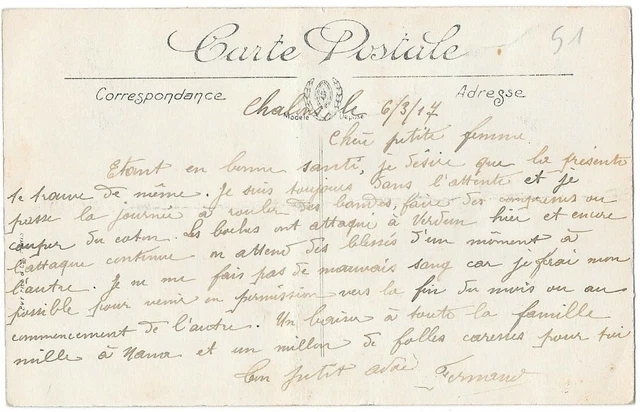 Carte Postale
51
Correspondance
Adresse
Modèle Déposé
Chalons le 6/3/17
Chère petite femme
Etant en bonne santé, je désire que la présente
te trouve de même. Je suis toujours dans l'attente et je
passe la journée à rouler des bandes, faire des compresses ou
couper du coton. Les boches ont attaqué à Verdun hier et encore
l'attaque continue on attend des blessés d'un moment à
l'autre. Je ne me fais pas de mauvais sang car je ferai mon
possible pour venir en permission vers la fin du mois ou au
commencement de l'autre. Un baiser à toute la famille
mille à Nana et un million de folles caresses pour toi
Ton petit adoré Fernand